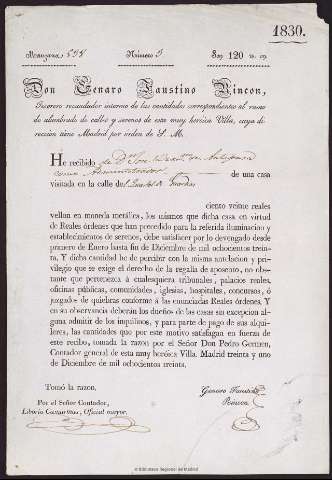 1830.
Manzana 598 Número 5 Son 120 rs. vn.
Don Genaro Faustino Rincon,
Tesorero recaudador interino de las cantidades correspondientes al ramo
de alumbrado de calles y serenos de esta muy heróica Villa, cuya di-
reccion tiene Madrid por órden de S. M.
He recibido de Dn. Jose
como Administrador de una casa
visitada en la calle de
ciento veinte reales
vellon en moneda metálica, los mismos que dicha casa en virtud
de Reales órdenes que han precedido para la referida iluminacion y
establecimiento de serenos, debe satisfacer por lo devengado desde
primero de Enero hasta fin de Diciembre de mil ochocientos trein-
ta. Y dicha cantidad he de percibir con la misma antelacion y pri-
vilegio que se exige el derecho de la regalía de aposento, no obs-
tante que pertenezca á cualesquiera tribunales, palacios reales,
oficinas públicas, comunidades, iglesias, hospitales, concursos, ó
juzgados de quiebras conforme á las enunciadas Reales órdenes. Y
en su observancia deberán los dueños de las casas sin excepcion al-
guna admitir de los inquilinos, y para parte de pago de sus alqui-
leres, las cantidades que por este motivo satisfagan en fuerza de
este recibo, tomada la razon por el Señor Don Pedro Germen,
Contador general de esta muy heróica Villa. Madrid treinta y uno
de Diciembre de mil ochocientos treinta.
Tomó la razon.
Genaro Faustino
Rincon.
Por el Señor Contador,
Liborio Camarmas, Oficial mayor.
© Biblioteca Regional de Madrid